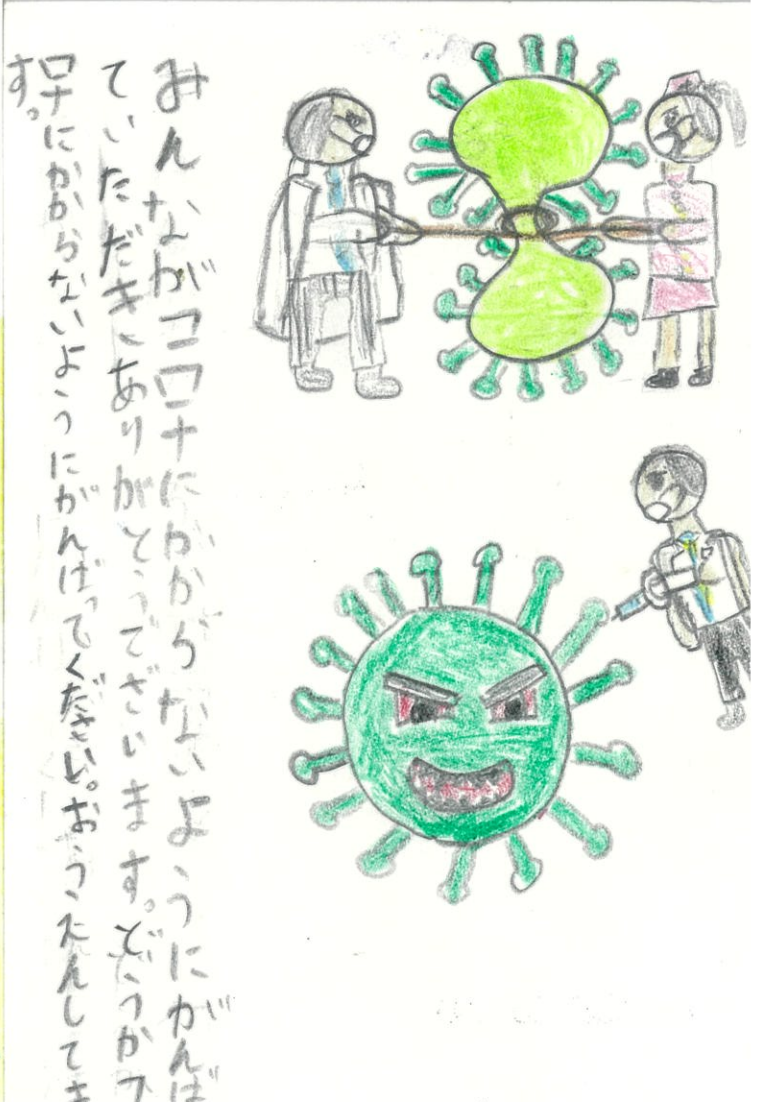 みんながコロナにかからないようにがんば
ていただき、ありがとうございます。どうかコ
ロナにかからないようにがんばってください。おうえんしてま
す。